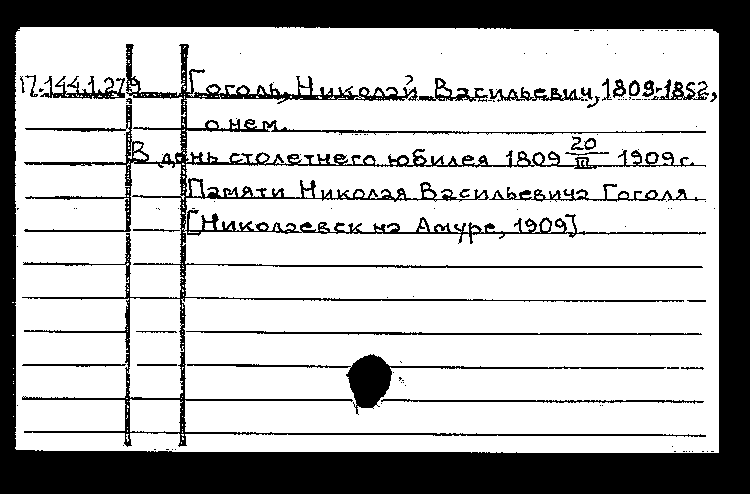 П.144.1.279 Гоголь, Николай Васильевич, 1809-1852,
о нем.
В день столетнего юбилея 1809 20/III 1909 г.
Памяти Николая Васильевича Гоголя.
[Николаевск на Амуре, 1909].